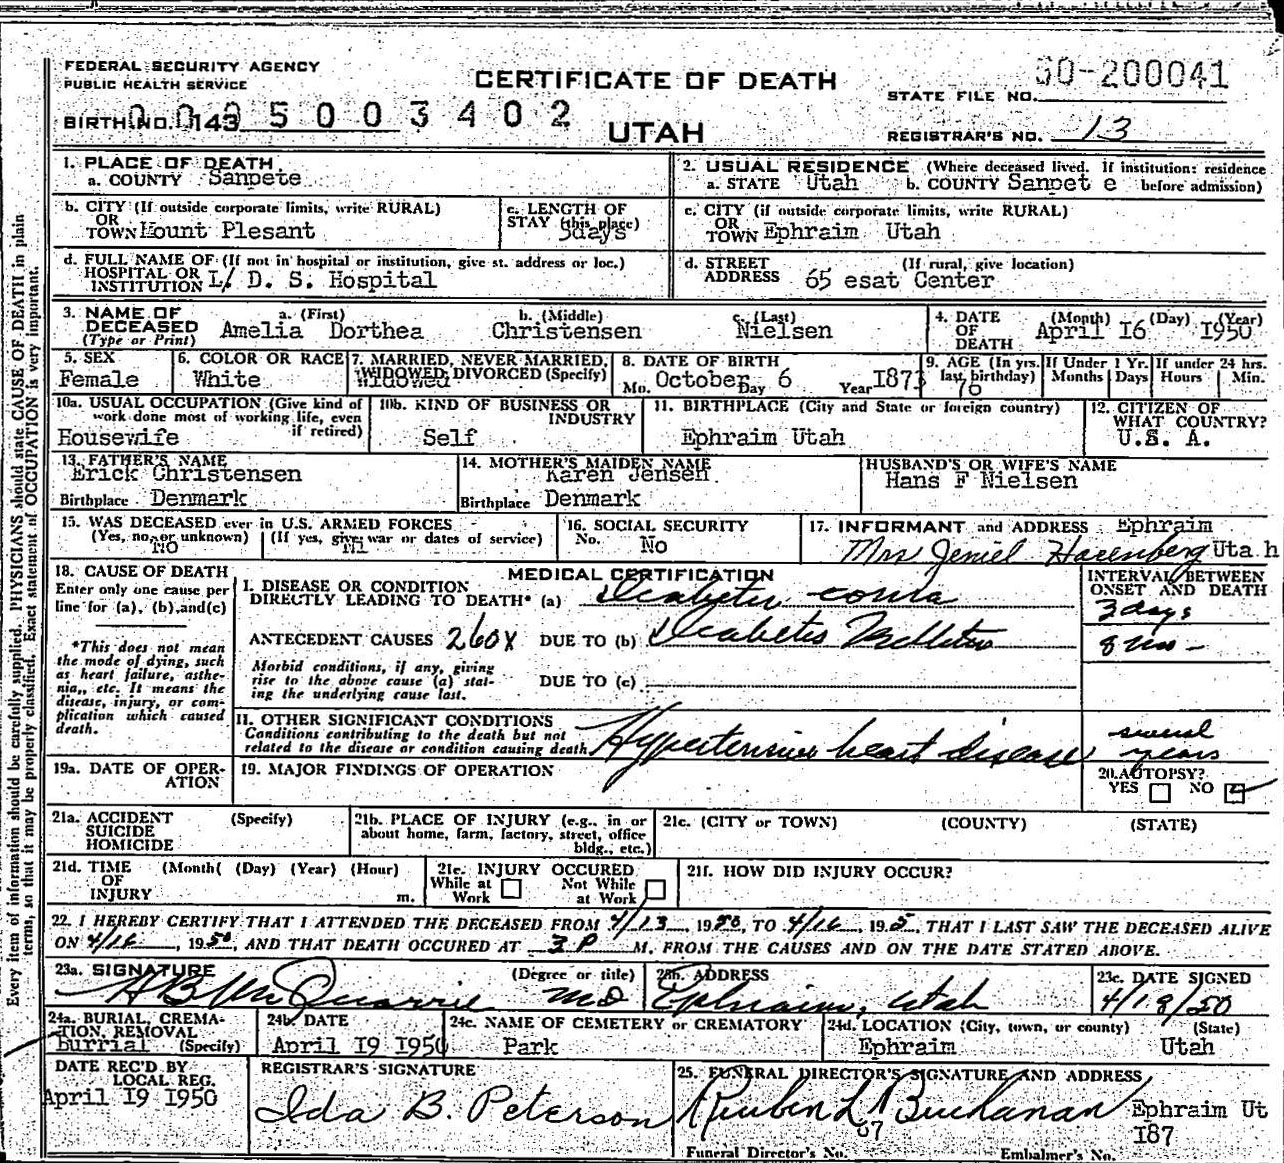 FEDERAL SECURITY AGENCY
PUBLIC HEALTH SERVICE
CERTIFICATE OF DEATH
STATE FILE NO. 50-200041
BIRTH NO. 143
0 0 0 5 0 0 3 4 0 2
UTAH
REGISTRAR'S NO. 13
1. PLACE OF DEATH
a. COUNTY Sanpete
2. USUAL RESIDENCE (Where deceased lived. If institution: residence
a. STATE Utah b. COUNTY Sanpet e before admission)
b. CITY (If outside corporate limits, write RURAL)
OR
TOWN Mount Plesant
c. LENGTH OF
STAY (this place)
3days
c. CITY (if outside corporate limits, write RURAL)
OR
TOWN Ephraim Utah
d. FULL NAME OF (If not in hospital or institution, give st. address or loc.)
HOSPITAL OR
INSTITUTION L. D. S. Hospital
d. STREET (If rural, give location)
ADDRESS 65 esat Center
3. NAME OF a. (First) b. (Middle) c. (Last)
DECEASED Amelia Dorthea Christensen Nielsen
(Type or Print)
4. DATE (Month) (Day) (Year)
OF April I6 I950
DEATH
5. SEX
Female
6. COLOR OR RACE
White
7. MARRIED, NEVER MARRIED,
WIDOWED, DIVORCED (Specify)
Widowed
8. DATE OF BIRTH
Mo. October Day 6 Year I873
9. AGE (In yrs. last birthday)
76
If Under 1 Yr.
Months Days
If under 24 hrs.
Hours Min.
10a. USUAL OCCUPATION (Give kind of
work done most of working life, even
if retired)
Housewife
10b. KIND OF BUSINESS OR
INDUSTRY
Self
11. BIRTHPLACE (City and State or foreign country)
Ephraim Utah
12. CITIZEN OF
WHAT COUNTRY?
U.S. A.
13. FATHER'S NAME
Erick Christensen
Birthplace Denmark
14. MOTHER'S MAIDEN NAME
Karen Jensen
Birthplace Denmark
HUSBAND'S OR WIFE'S NAME
Hans F Nielsen
15. WAS DECEASED ever in U.S. ARMED FORCES
(Yes, no, or unknown) (If yes, give war or dates of service)
NO
16. SOCIAL SECURITY
No. No
17. INFORMANT and ADDRESS Ephraim
Mrs Jeniel Utah
18. CAUSE OF DEATH
Enter only one cause per
line for (a), (b), and (c)
*This does not mean
the mode of dying, such
as heart failure, asthe-
nia, etc. It means the
disease, injury, or com-
plication which caused
death.
MEDICAL CERTIFICATION
I. DISEASE OR CONDITION
DIRECTLY LEADING TO DEATH* (a) Diabetic coma
ANTECEDENT CAUSES 260X DUE TO (b) Diabetes Mellitus
Morbid conditions, if any, giving
rise to the above cause (a) stat-
ing the underlying cause last.
DUE TO (c)
II. OTHER SIGNIFICANT CONDITIONS
Conditions contributing to the death but not
related to the disease or condition causing death
Hypertensive heart disease
INTERVAL BETWEEN
ONSET AND DEATH
3 days
8 mo -
several
years
19a. DATE OF OPER-
ATION
19. MAJOR FINDINGS OF OPERATION
20. AUTOPSY?
YES NO
21a. ACCIDENT (Specify)
SUICIDE
HOMICIDE
21b. PLACE OF INJURY (e.g., in or
about home, farm, factory, street, office
bldg., etc.)
21c. (CITY or TOWN) (COUNTY) (STATE)
21d. TIME (Month( (Day) (Year) (Hour)
OF
INJURY m.
21e. INJURY OCCURED
While at Work Not While at Work
21f. HOW DID INJURY OCCUR?
22. I HEREBY CERTIFY THAT I ATTENDED THE DECEASED FROM 4/13, 1950, TO 4/16, 195, THAT I LAST SAW THE DECEASED ALIVE
ON 4/16, 1950, AND THAT DEATH OCCURED AT 3 P M. FROM THE CAUSES AND ON THE DATE STATED ABOVE.
23a. SIGNATURE (Degree or title)
MD
23b. ADDRESS
Ephraim, Utah
23c. DATE SIGNED
4/18/50
24a. BURIAL, CREMA-
TION, REMOVAL
Burrial (Specify)
24b. DATE
April I9 I950
24c. NAME OF CEMETERY or CREMATORY
Park
24d. LOCATION (City, town, or county) (State)
Ephraim Utah
DATE REC'D BY
LOCAL REG.
April I9 I950
REGISTRAR'S SIGNATURE
Ida B. Peterson
25. FUNERAL DIRECTOR'S SIGNATURE AND ADDRESS
Reuben L Buchanan Ephraim Ut
87 I87
Funeral Director's No. Embalmer's No.
Every item of information should be carefully supplied. PHYSICIANS should state CAUSE OF DEATH in plain
terms, so that it may be properly classified. Exact statement of OCCUPATION is very important.